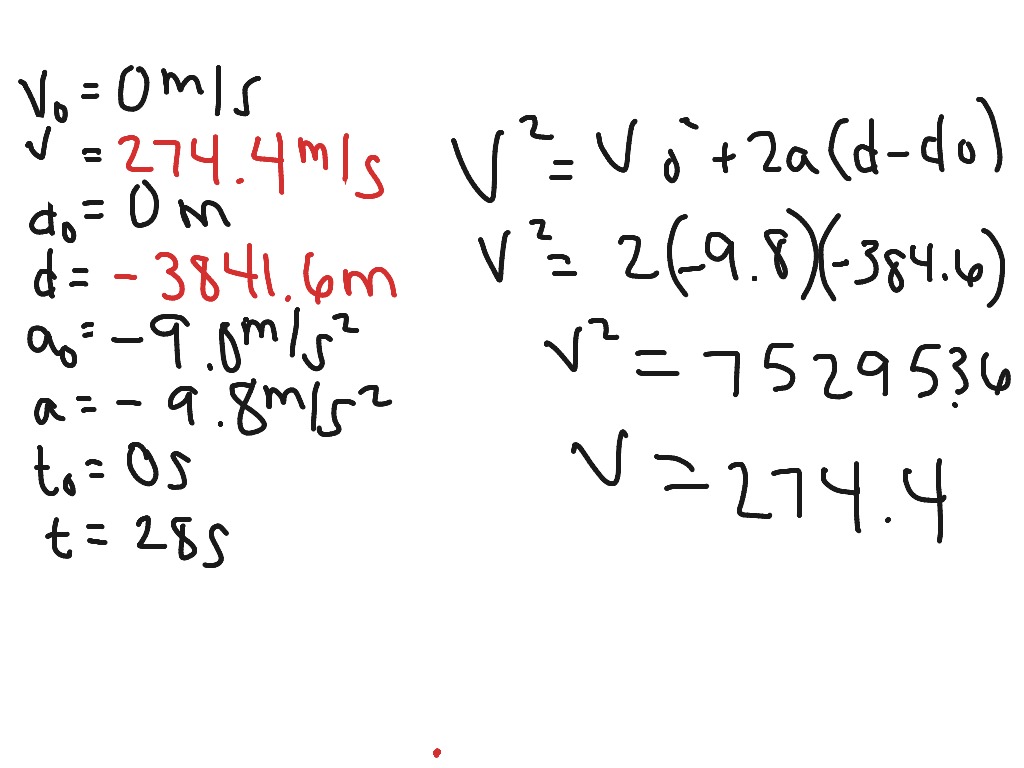 v₀ = 0 m/s
v = 274.4 m/s
d₀ = 0 m
d = -3841.6 m
a₀ = -9.0 m/s²
a = -9.8 m/s²
t₀ = 0s
t = 28s
V² = V₀² + 2a(d-d₀)
V² = 2(-9.8)(-384.6)
V² = 75295.36
V = 274.4